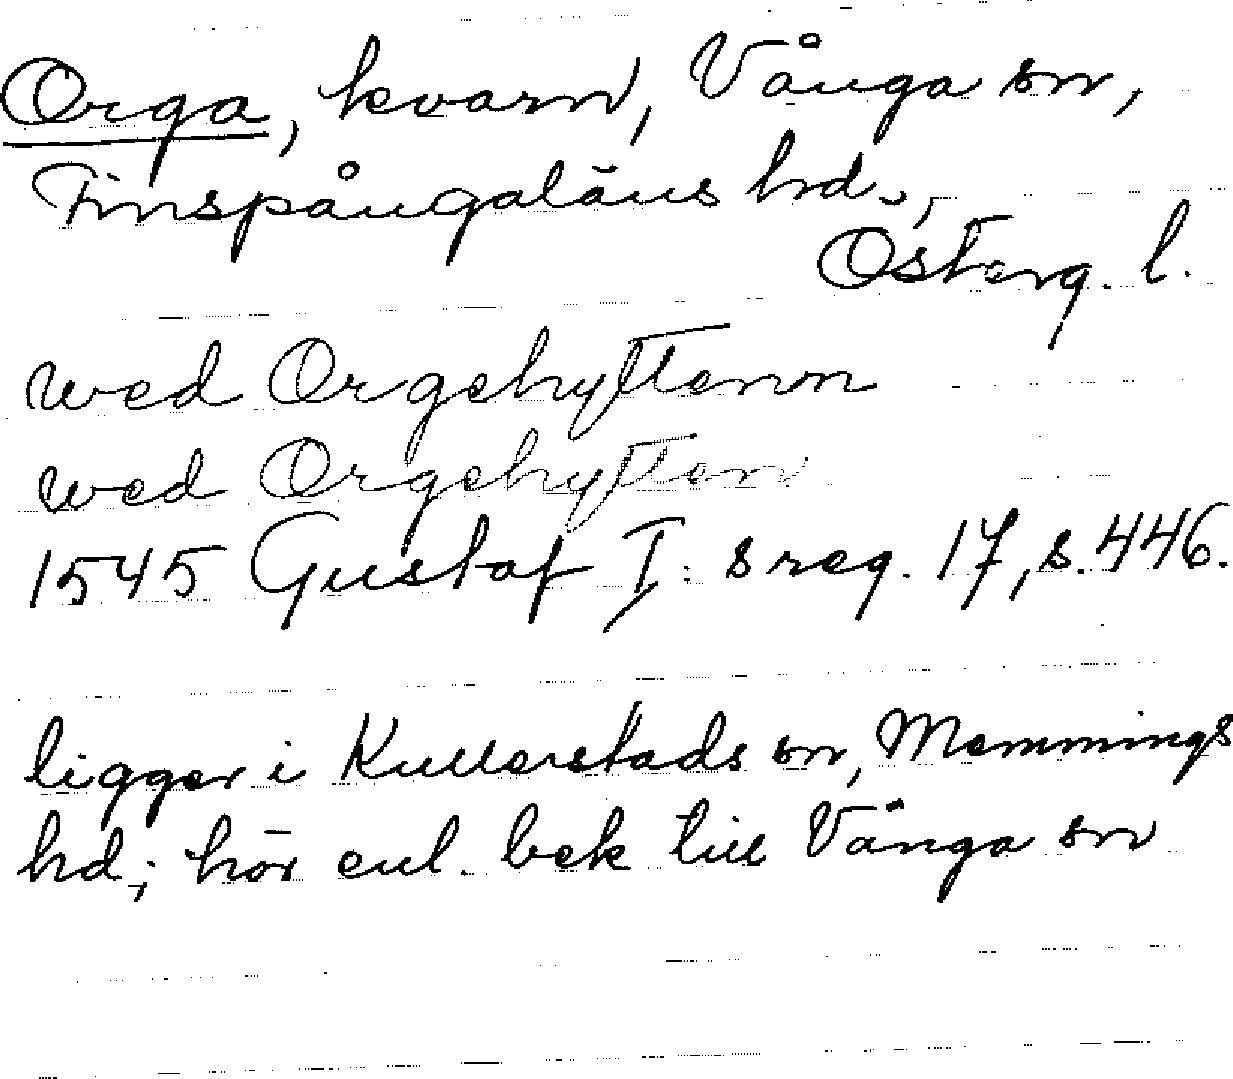 Orga, kvarn, Vånga sn,
Finspångaläns hd.,
Österg. l.
wed Orgehyttenn
wed Orgehytten
1545 Gustaf I:s reg. 17, s. 446.
ligger i Kullerstads sn, Memmings
hd; hör enl. bek till Vånga sn